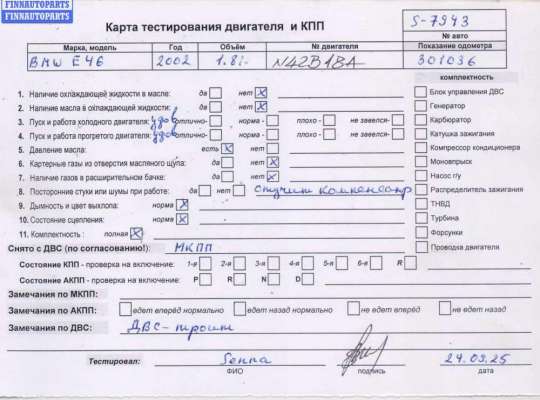 FINNAUTOPARTS
FINNAUTOPARTS
Карта тестирования двигателя и КПП
S-7943
№ авто
Марка, модель Год Объём № двигателя Показание одометра
BMW E46 2002 1.8i N42B18A 301036
комплектность
1. Наличие охлаждающей жидкости в масле: да нет X
2. Наличие масла в охлаждающей жидкости: да нет X
3. Пуск и работа холодного двигателя: удов отлично- норма - плохо - не завелся-
4. Пуск и работа прогретого двигателя: удов отлично- норма - плохо - не завелся-
5. Давление масла: есть X нет
6. Картерные газы из отверстия масляного щупа: да нет X
7. Наличие газов в расширительном бачке: да нет X
8. Посторонние стуки или шумы при работе: да нет Стучит компенсатр
9. Дымность и цвет выхлопа: норма X
10. Состояние сцепления: норма X
11. Комплектность : полная X
Блок управления ДВС
Генератор
Карбюратор
Катушка зажигания
Компрессор кондиционера
Моновпрыск
Насос г/у
Распределитель зажигания
ТНВД
Турбина
Форсунки
Проводка двигателя
Снято с ДВС (по согласованию!): МКПП
Состояние КПП - проверка на включение: 1-я 2-я 3-я 4-я 5-я 6-я R
Состояние АКПП - проверка на включение: P R N D
Замечания по МКПП:
Замечания по АКПП: едет вперёд нормально едет назад нормально не едет вперёд не едет назад
Замечания по ДВС: ДВС-троит
Тестировал: Senna 24.03.25
ФИО подпись дата